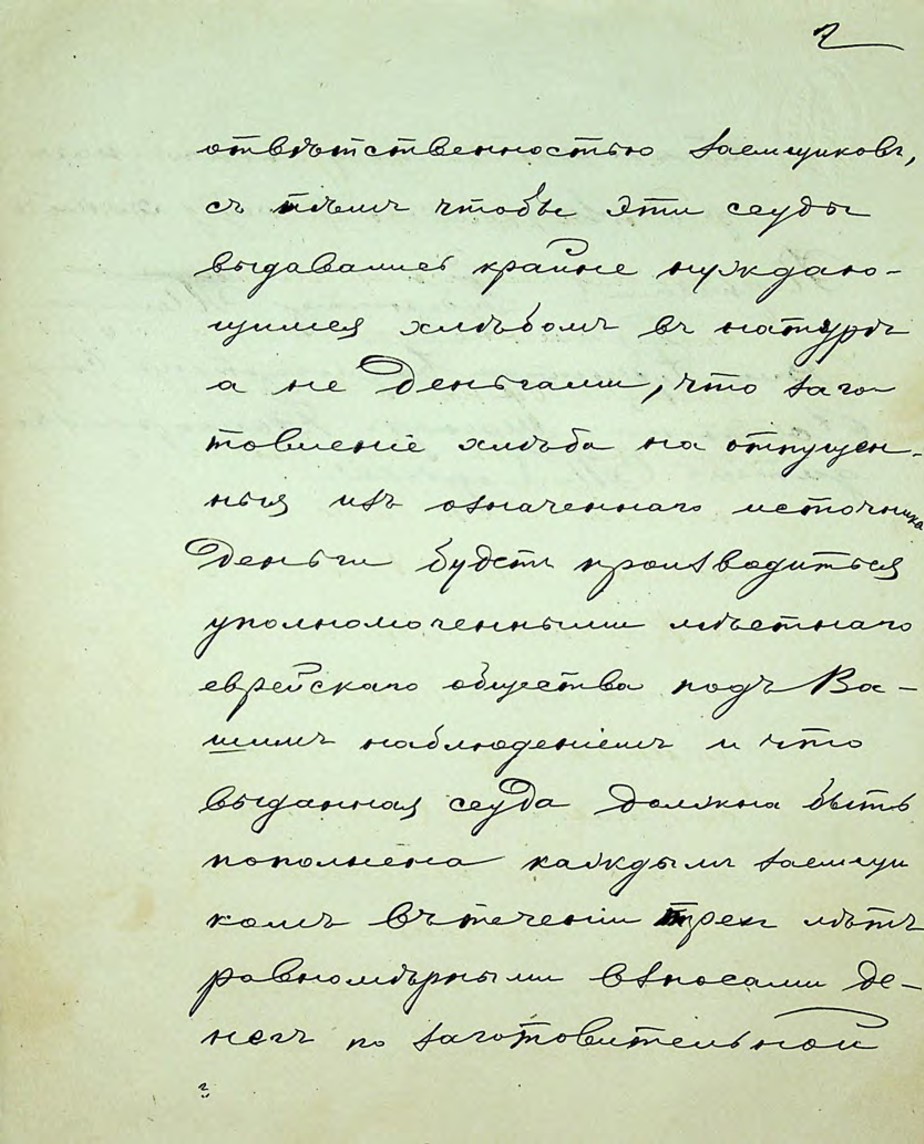 2
отвѣтственностью заемщиковъ,
съ тѣмъ чтобы эти ссуды
выдавались крайне нуждаю-
щимся хлѣбомъ въ натурѣ
а не деньгами, что заго-
товленіе хлѣба на отпущен-
ныя изъ означеннаго источника
деньги будетъ производиться
уполномоченными мѣстнаго
еврейскаго общества подъ Ва-
шимъ наблюденіемъ и что
выданная ссуда должна быть
пополнена каждымъ заемщи
комъ въ теченіи трехъ лѣтъ
равномѣрными взносами де-
негъ по заготовительной